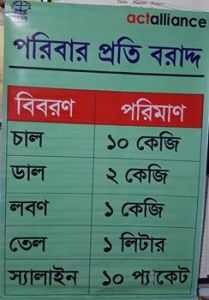 actalliance
পরিবার প্রতি বরাদ্দ
বিবরণ পরিমাণ
চাল ১০ কেজি
ডাল ২ কেজি
লবণ ১ কেজি
তেল ১ লিটার
স্যালাইন ১০ প্যাকেট